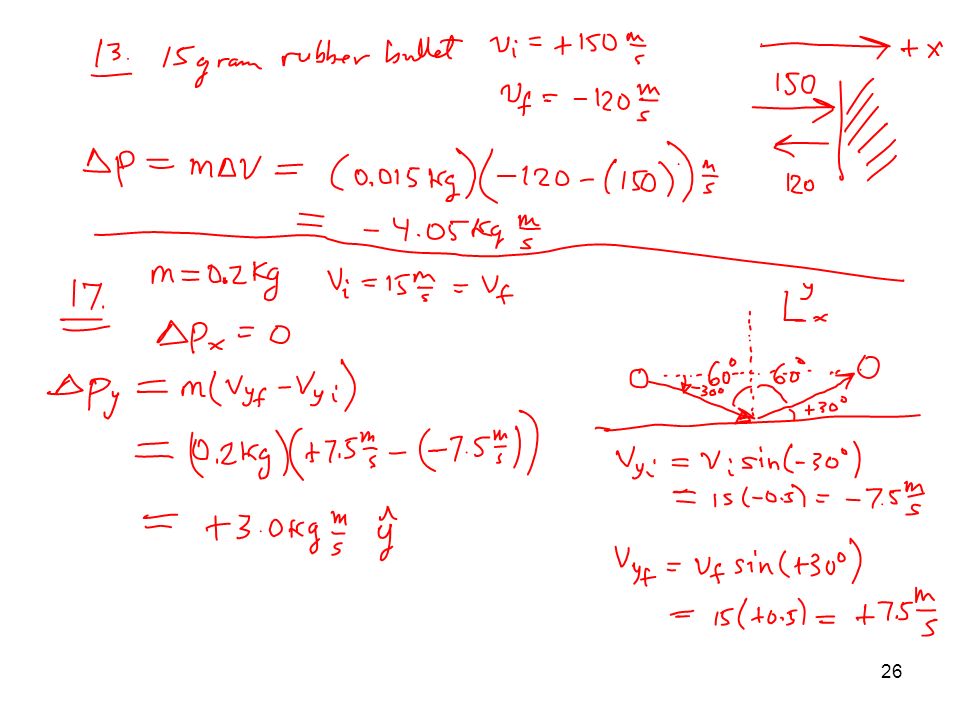 13. 15 gram rubber bullet vi = +150 m/s
vf = -120 m/s
+x
150
120
ΔP = mΔV = (0.015 Kg)(-120 - (150)) m/s
= -4.05 Kg m/s
17. m = 0.2 Kg Vi = 15 m/s = Vf
ΔPx = 0
ΔPy = m(Vyf - Vyi)
= (0.2 Kg)(+7.5 m/s - (-7.5 m/s))
= +3.0 Kg m/s ŷ
y
x
60° 60°
-30° +30°
Vyi = Vi sin(-30°)
= 15(-0.5) = -7.5 m/s
Vyf = Vf sin(+30°)
= 15(+0.5) = +7.5 m/s
26